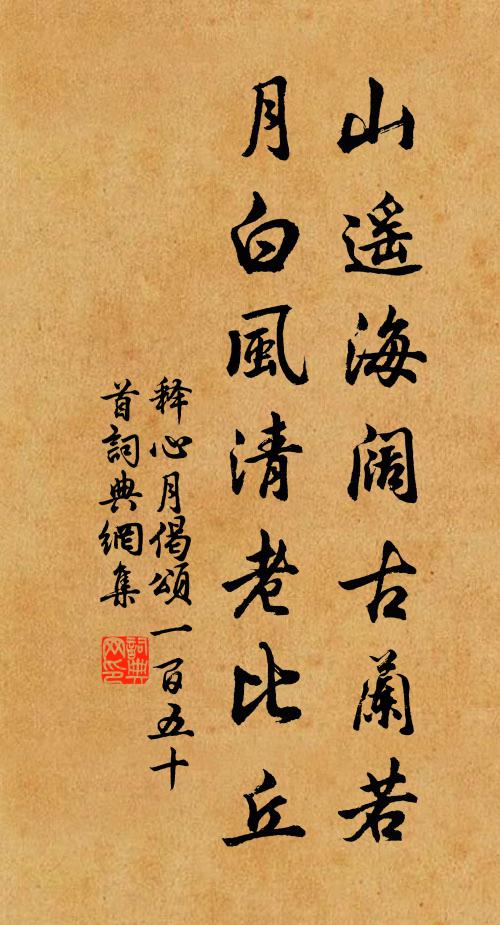 山遥海阔古蘭若
月白風清老比丘
释心月偈頌一百五十
首詞典網集
詞典
网印